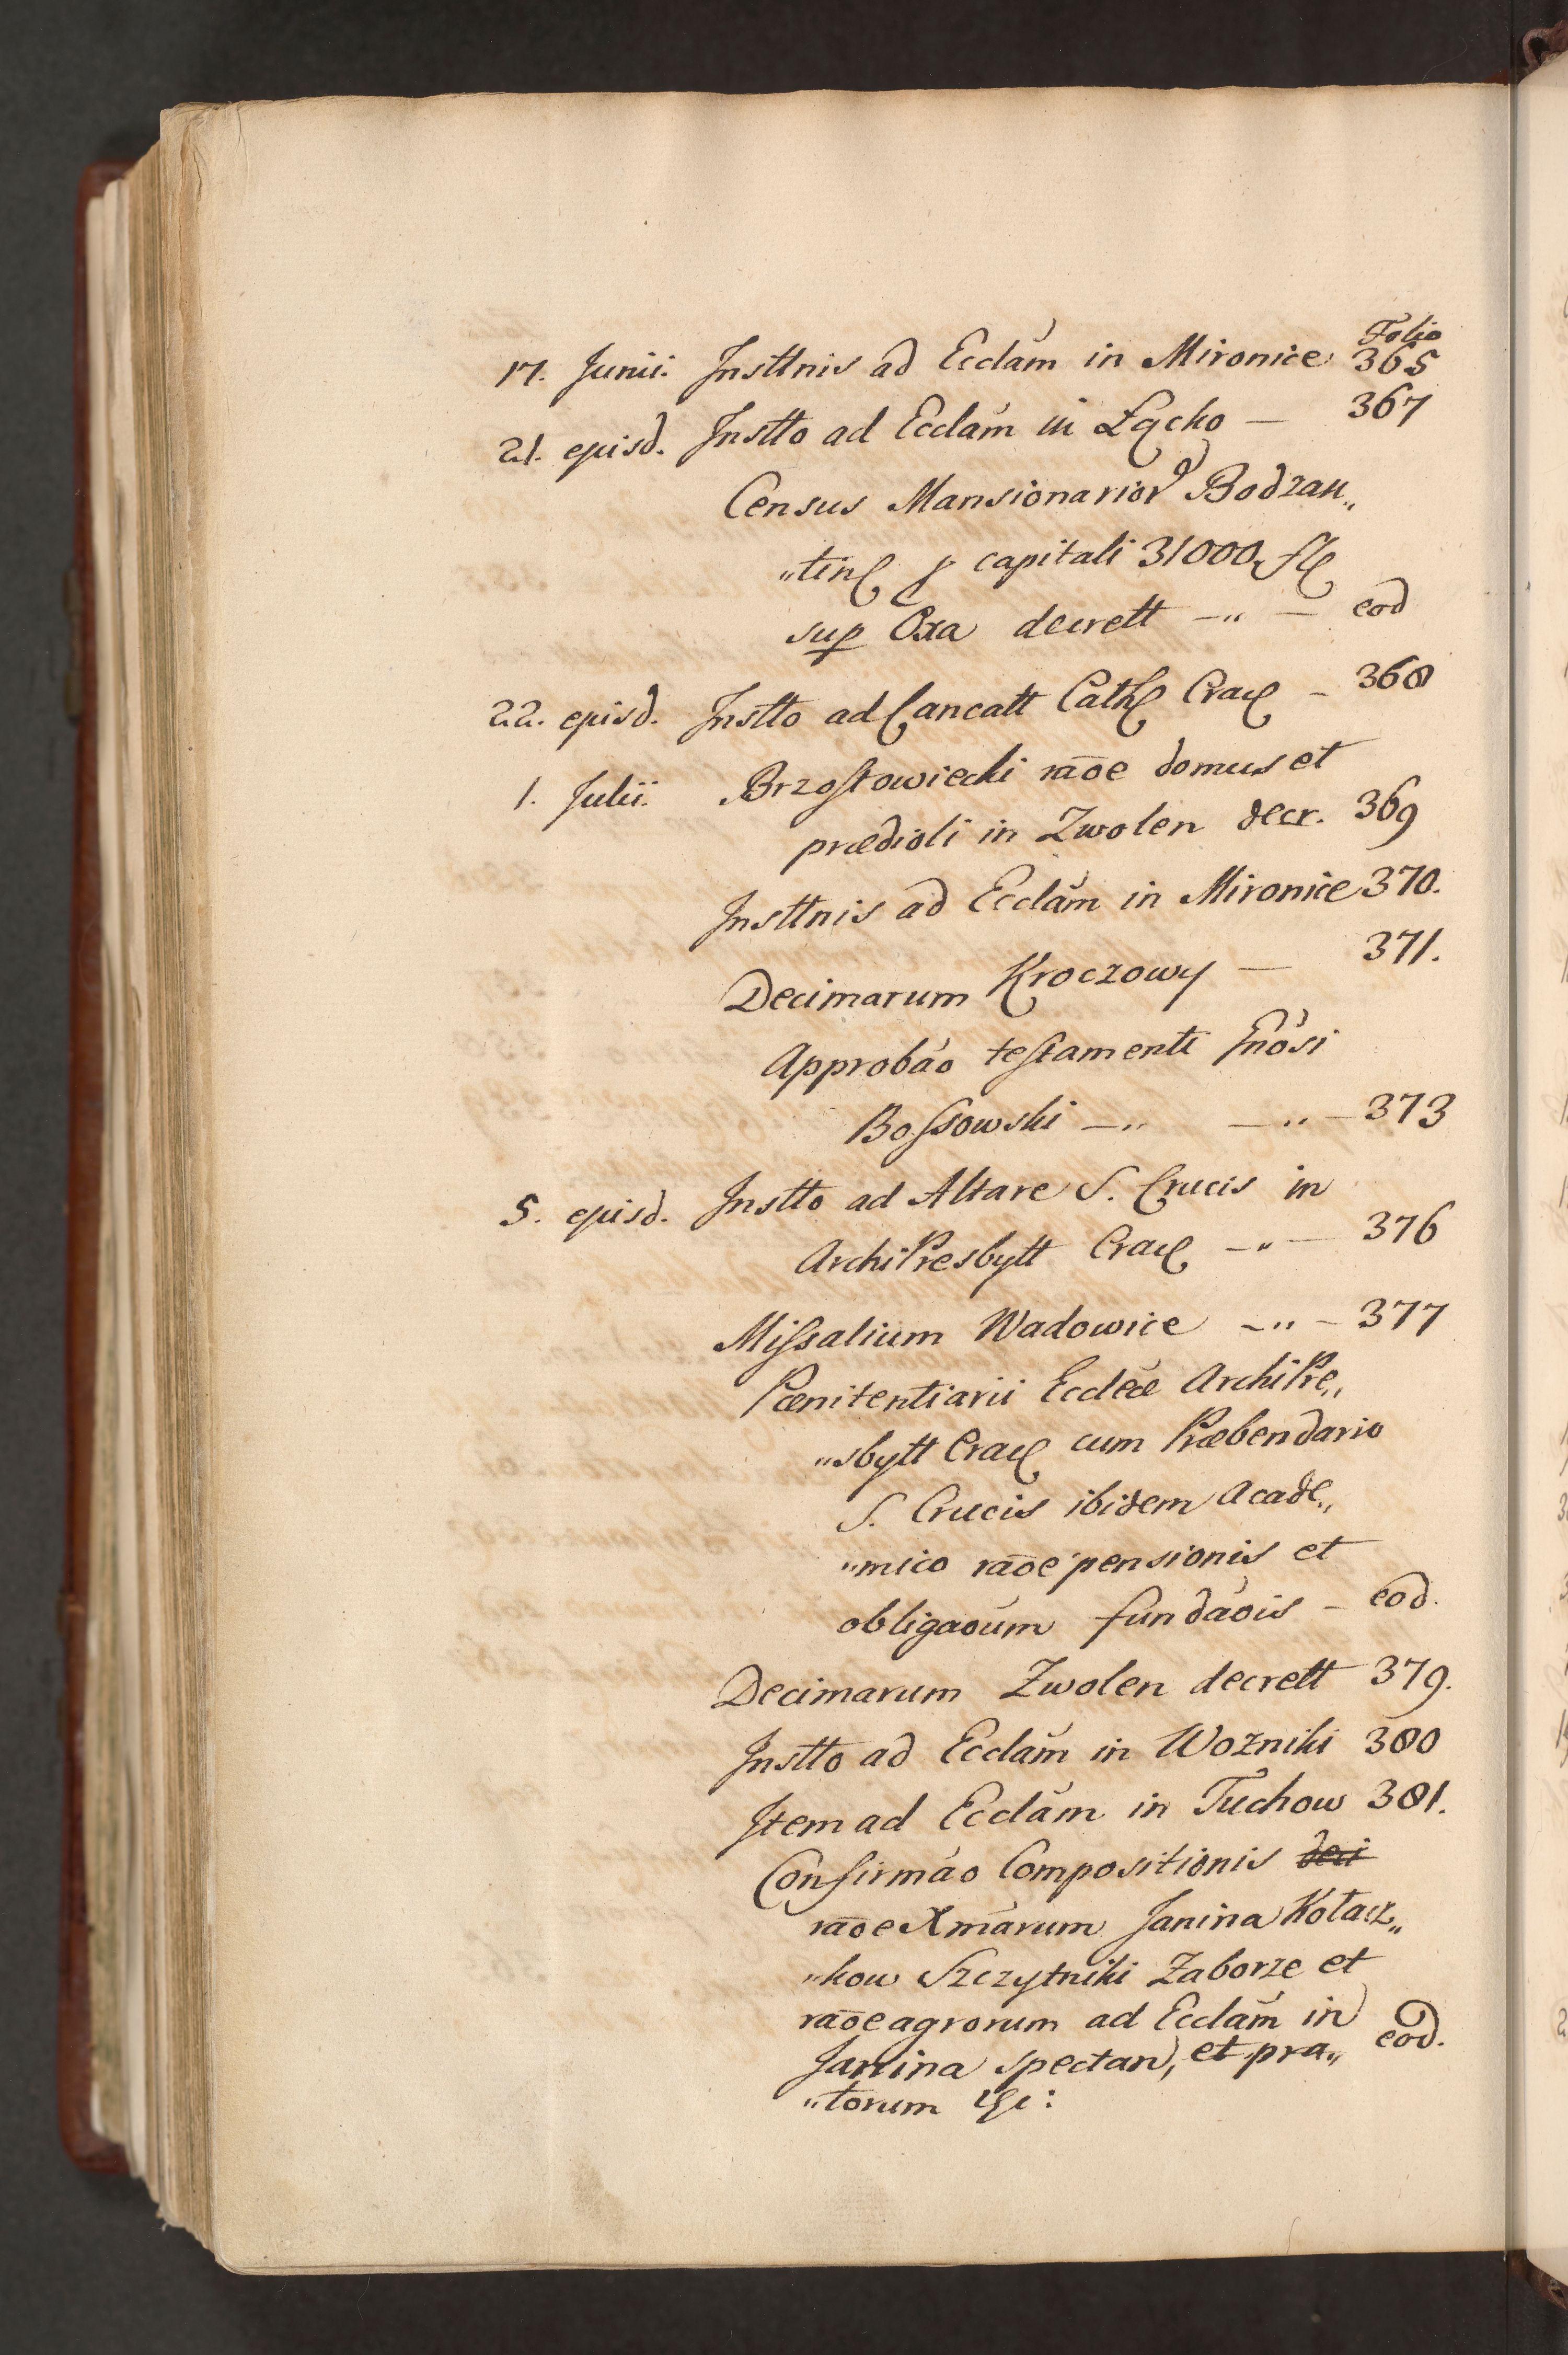 Folio
17. Junii. Insttnis ad Ecclãm in Mironice 365
21. ejusd. Instto ad Ecclãm in Łącko — 367
Census Mansionarior Bodzan„
„tin capitali 31000. fl
sup Oxa decrett —„— eod
22. ejusd. Instto ad Cancatt Cath Crac — 368
1. Julii. Brzostowiecki raõe domus et
prædioli in Zwolen decr. 369
Insttnis ad Ecclãm in Mironice 370.
Decimarum Kroczowy — 371.
Approbão testamenti Gnõsi
Bossowski —„ —„— 373
5. ejusd. Instto ad Altare S. Crucis in
ArchiPresbytt Crac —„— 376
Missalium Wadowice —„— 377
Pœnitentiarii Eccleæ ArchiPre„
„sbytt Crac cum Præbendario
S. Crucis ibidem Acade„
„mico raõe pensionis et
obligaoũm fundãois — eod.
Decimarum Zwolen decrett 379.
Instto ad Ecclãm in Wozniki 380
Item ad Ecclãm in Tuchow 381.
Confirmão Compositionis deci
raõe Xmãrum Janina Kołacz„
„kow Szczytniki Zaborze et
raõe agrorum ad Ecclãm in
Janina spectan, et pra„ eod.
„torum